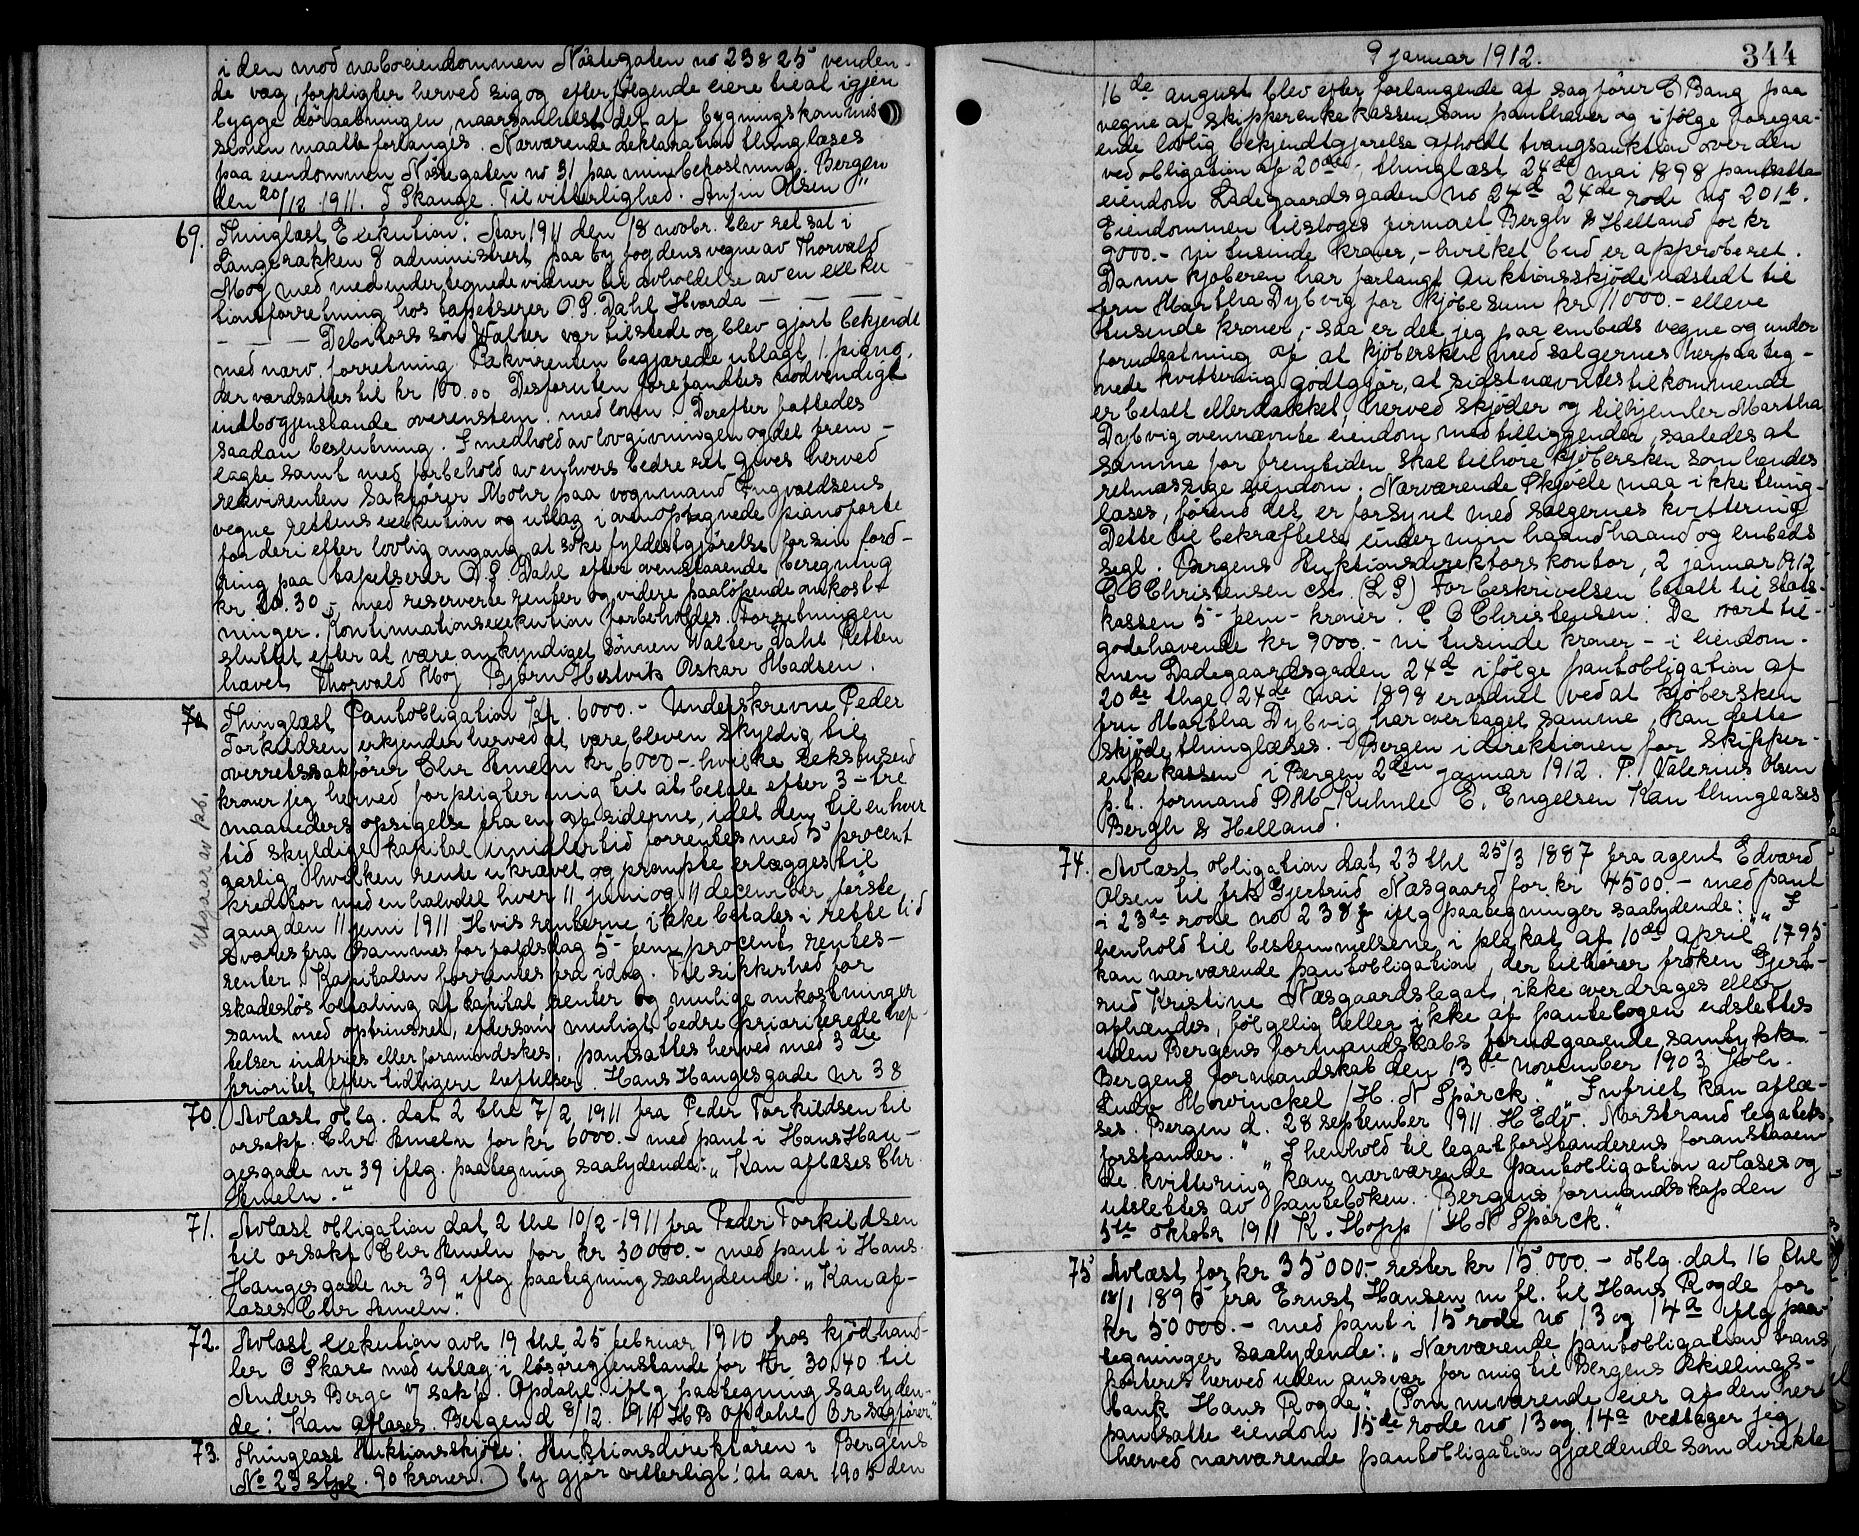 i den mod naboeiendommen Nöstegaten no 23 & 25 venden-
de væg, forpligter herved sig og efterfölgende eiere til at igjen
bygge döraabningen, naarsomhelst det af bygningskommis
sionen maatte forlanges. Nærværende deklaration thinglæses
paa eiendommen Nöstegaten no 31 paa min bekostning. Bergen
den 20/12 1911. I Skauge. Til vitterlighed. Anfin Olsen"
69. Thinglæst Exekution: Aar 1911 den 18 novbr. blev ret sat i
Langerækken 8 administrert paa byfogdens vegne av Thorvald
Moy med medundertegnede vidner til avholdelse av en exeku
tionsforretning hos tapetserer O. S. Dahl. Hvorda — — — —
— — — Debitors sön Walter var tilstede og blev gjort bekjendt
med nærv. forretning. Rekvirenten begjærede utlagt 1. piano.
der værdsattes til kr 100.00 Desforuten forefandtes nödvendigt
indbogjenstande overenstem. med loven. Derefter fattedes
saadan beslutning. I medhold av lovgivningen og det frem-
lagte samt med forbehold av enhvers bedre ret gives herved
rekvirenten Sakförer Mohr paa vognmand Ingvaldsens
vegne rettens exekution og utlæg i ovenoptegnede pianoforte
for deri efter lovlig omgang at söke fyldestgjörelse for sin ford-
ring paa tapetserer O. S. Dahl efter ovenstaaende beregning
kr 20.30 - med reserverte renter og videre paalöpende omkost-
ninger. Kontinuationsexekution forbeholdes. Forretningen
sluttet efter at være ankyndiget Sönnen Walter Dahl Retten
hævet Thorvald Moy Bjarn Hestvik Oskar Madsen.
70 Thinglæst Pantobligation Kr. 6000.- Underskrevne Peder
Torkildsen erkjender herved at være bleven skyldig til
overretssakförer Chr Ameln kr 6000 - hvilke sekstusend
kroner jeg herved forpligter mig til at betale efter 3 - tre
maaneders opsigelse fra en af siderne, idet den til en hver
tid skyldige kapital imidlertid forrentes med 5 procent
aarlig, hvilken rente ukrævet og prompte erlægges til
kreditor med en halvdel hver 11 juni og 11 december förste
gang den 11 juni 1911 Hvis renterne ikke betales i rette tid
svares fra sammes forfaldsdag 5 - fem procent rentes-
renter Kapitalen forrentes fra idag. Til sikkerhed for
skadeslös betaling af kapital, renter og mulige omkostninger
samt med optrinsret, eftersom muligt bedre prioriterede hef-
telser indfries eller formindskes, pantsættes herved med 3die
prioritet efter tidligere heftelser. Hans Hauges gade nr 38
Utgaar av pb.
70. Avlæst oblg. dat 2 thl 7/2 1911 fra Peder Torkildsen til
orsakf. Chr. Ameln for kr 6000.- med pant i Hans Hau-
gesgade nr 39 iflg. paategning saalydende: „Kan aflæses Chr.
Ameln."
71. Avlæst obligation dat 2 thl 10/2 - 1911 fra Peder Torkildsen
til orsakf Chr Ameln for kr 30000.- med pant i Hans.
Hauges gade nr 39 iflg paategning saalydende: „Kan af-
læses Chr Ameln."
72. Avlæst exekution avh 19 thl 25 februar 1910 hos kjödhand-
ler O Skare med utlæg i lösöregjenstande for kr 30.40 til
Anders Berge v/ sakf. Opdahl iflg paategning saalyden-
de: Kan aflæses. Bergen d 8/12. 1911 H B Opdahl Or sagförer"
73. Thinglæst Auktionsskjöte: Auktionsdirektören i Bergens
No 23 stpl. 90 kroner.) by gjör vitterligt: at aar 1905 den
9 januar 1912.
344
16de august blev efter forlangende af sagförer C Bang paa
vegne af skipperenkekassen som panthaver og ifölge foregaa-
ende lovlig bekjendtgjörelse afholdt tvangsauktion over den
ved obligation af 20de, thinglæst 24de mai 1898 pantsatte
eiendom Ladegaardsgaden no 24d 24de rode no 201b.
Eiendommen tilsloges firmaet Bergh & Helland for kr
9000.- ni tusinde kroner, - hvilket bud er approberet.
Da nu kjöberen har forlangt Auktionsskjöde udstedt til
fru Martha Dybvig for kjöbesum kr 11000.- elleve
tusinde kroner, - saa er det jeg paa embeds vegne og under
forudsætning af at kjöbersken med sælgernes herpaa teg-
nede kvittering godtgjör, at sidstnævntes tilkommende
er betalt eller dækket, herved skjöder og tilhjemler Martha
Dybvig ovennævnte eiendom med tilliggender, saaledes at
samme for fremtiden skal tilhöre kjöbersken som hendes
retmæssige eiendom. Nærværende Skjöde maa ikke thing-
læses, förend det er forsynt med sælgernes kvittering
Dette til bekræftelse under min haand haand og embeds
segl. Bergens Auktionsdirektörs kontor, 2 januar 1912
C C Christensen css. (L S) For beskrivelsen betalt til stats-
kassen 5 - fem - kroner. C C Christensen: Da vort til-
godehavende kr 9000.- ni tusinde kroner - i eiendom-
men Ladegaardsgaden 24d ifölge pantobligation af
20de thgl. 24de mai 1898 er ordnet ved at kjöbersken
fru Martha Dybvig har overtaget samme, kan dette
skjöde thinglæses. - Bergen i direktionen for skipper-
enkekassen i Bergen 2den januar 1912. P. Valerius Olsen
f. t. formand D M Kuhnle E. Engelsen Kan thinglæses
Bergh & Helland.
74. Avlæst obligation dat 23 thl 25/3 1887 fra agent Edvard
Olsen til frk Gjertrud Næsgaard for kr 4500.- med pant
i 23de rode no 238 iflg paategninger saalydende: „I
henhold til bestemmelsene i plakat af 10de april 1795
kan nærværende pantobligation, der tilhörer fröken Gjert-
rud Kristine Næsgaards legat, ikke overdrages eller
afhændes, fölgelig heller ikke af pantebogen udslettes
uden Bergens formandskabs forudgaaende samtykke
Bergens formandskab den 13de november 1903 Joh.
Ludv Mowinckel / H. N Spörck." „Infriet kan aflæ-
ses. Bergen d. 28 september 1911. H Edv. Norstrand legatets
forstander." „I henhold til legatforstanderens foranstaaen-
de kvittering kan nærværende pantobligation avlæses og
utslettes av panteboken. Bergens formandskap den
5te oktobr 1911 K. Hopp / H N Spörck."
75 Avlæst for kr 35000.- rester kr 15000.- oblg. dat 16 thl
18/1 1895 fra Ernst Hansen m fl. til Hans Rogde for
kr 50000.- med pant i 15 rode no 13 og 14a iflg paa-
tegninger saalydende: „Nærværende pantobligation trans
porteres herved uden ansvar for mig til Bergens Skillings-
bank Hans Rogde." „Som nuværende eier af den her
pantsatte eiendom 15de rode no 13 og 14a vedtager jeg
herved nærværende pantobligation gjældende som direkte